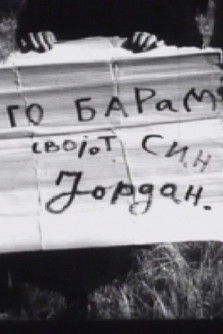 ГО БАРАМ
СВОЈОТ СИН
Јордан.